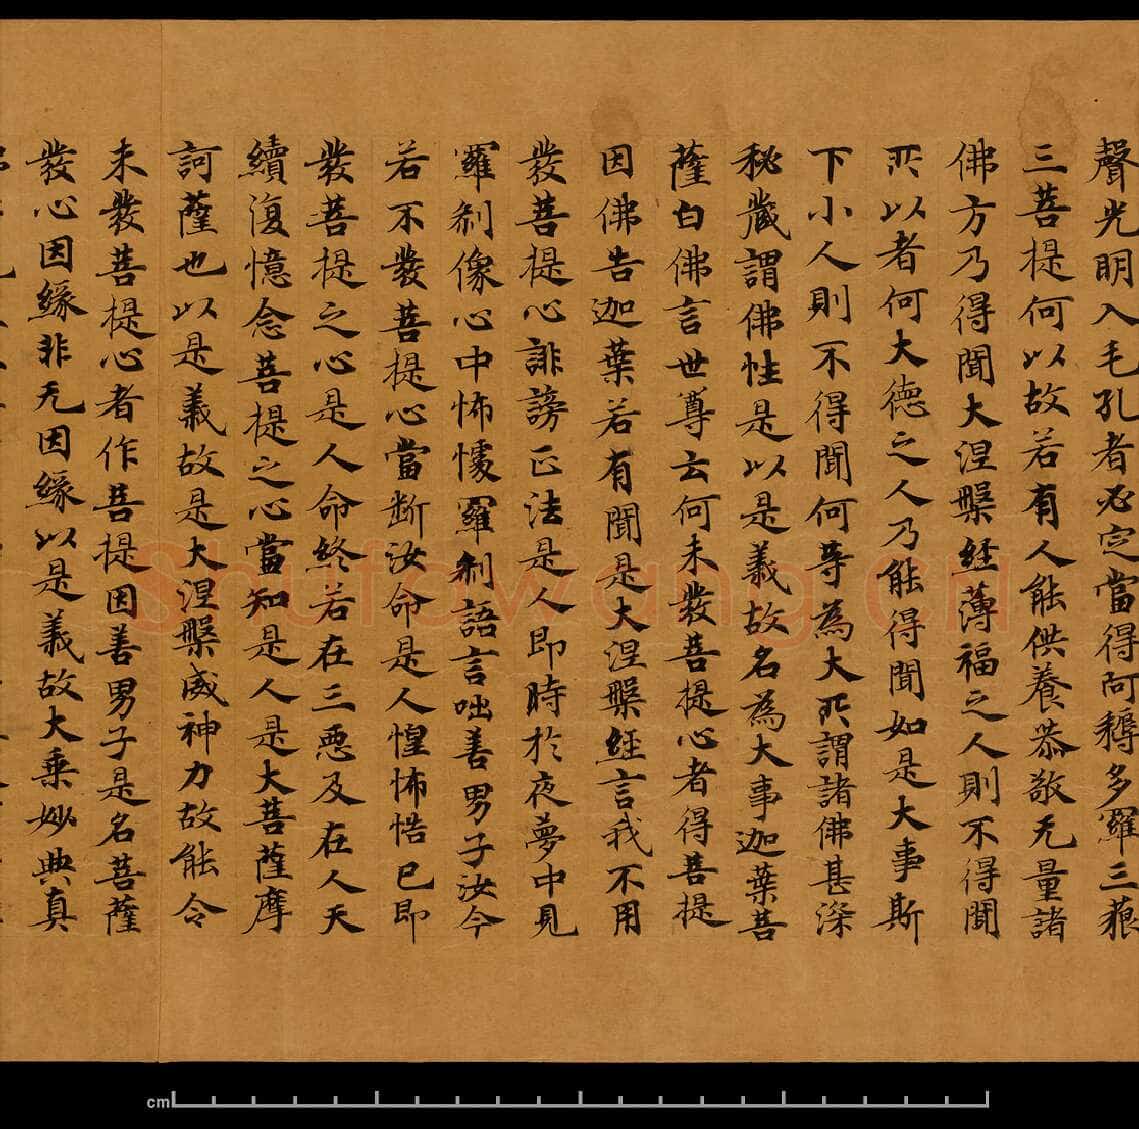 聲光明入毛孔者必定當得阿耨多羅三藐
三菩提何以故若有人能供養恭敬无量諸
佛方乃得聞大涅槃經薄福之人則不得聞
所以者何大德之人乃能得聞如是大事斯
下小人則不得聞何等為大所謂諸佛甚深
秘藏謂佛性是以是義故名為大事迦葉菩
薩白佛言世尊云何未發菩提心者得菩提
因佛告迦葉若有聞是大涅槃經言我不用
發菩提心誹謗正法是人即時於夜夢中見
羅剎像心中怖懅羅剎語言咄善男子汝今
若不發菩提心當斷汝命是人惶怖悟已即
發菩提之心是人命終若在三惡及在人天
續復憶念菩提之心當知是人是大菩薩摩
訶薩也以是義故是大涅槃威神力故能令
未發菩提心者作菩提因善男子是名菩薩
發心因緣非无因緣以是義故大乘妙典真
Shufawang.cn
cm